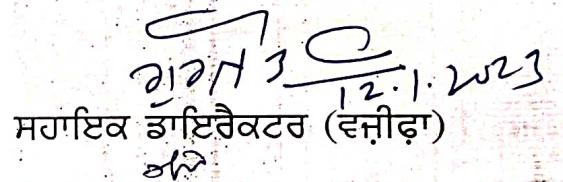 ਗੁਰਜੀਤ
12.1.2023
ਸਹਾਇਕ ਡਾਇਰੈਕਟਰ (ਵਜ਼ੀਫ਼ਾ)